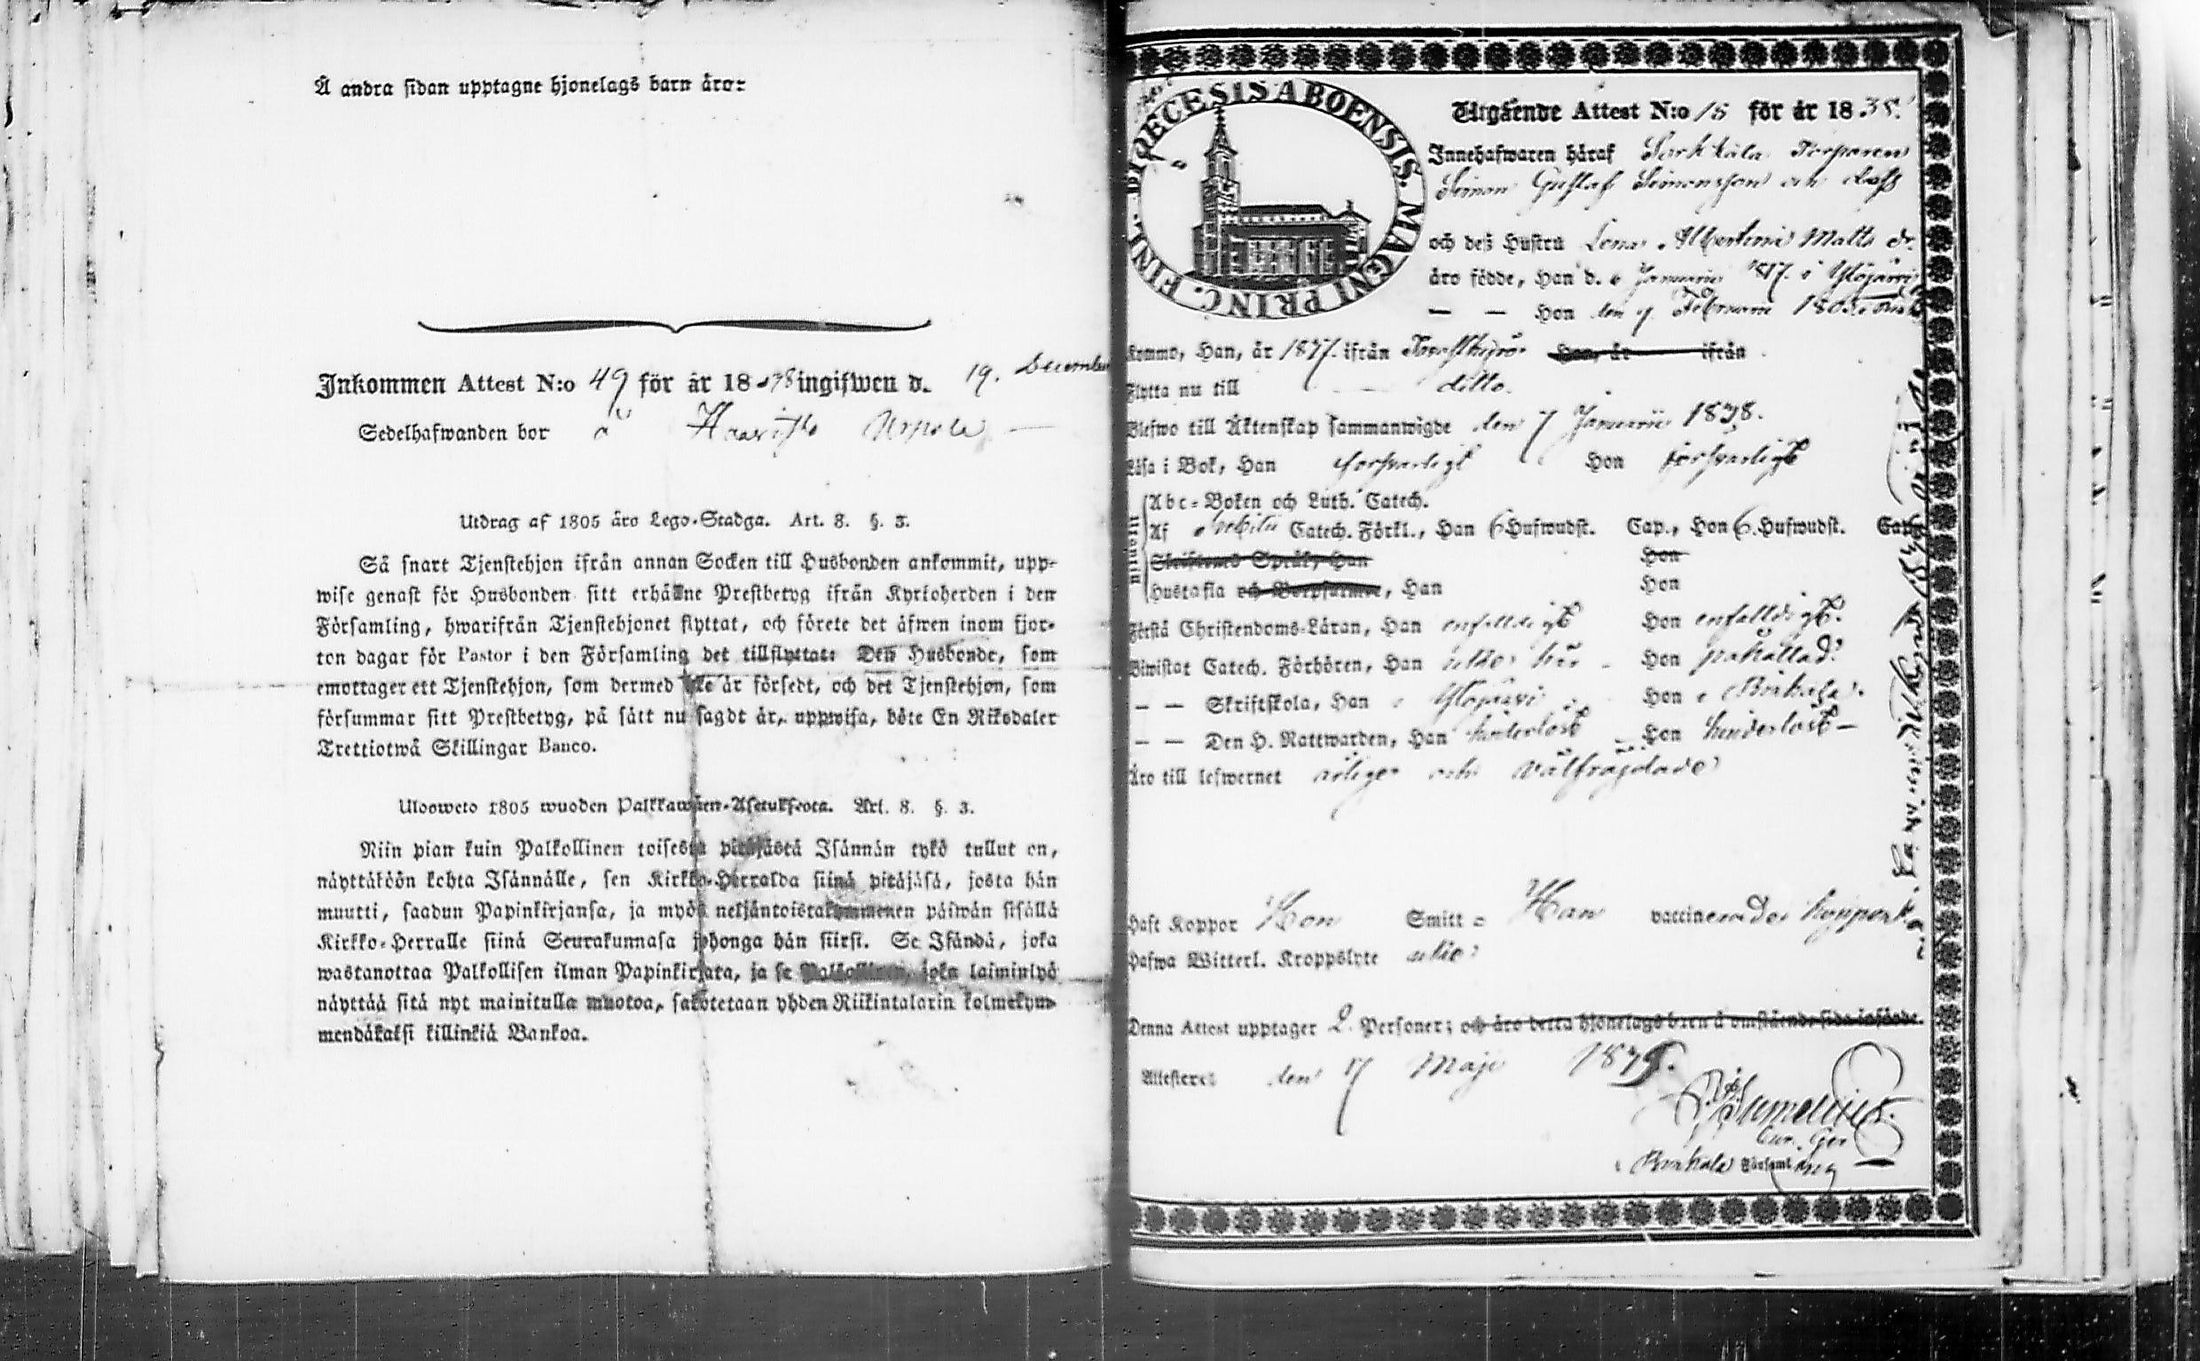 Å andra sidan upptagne hjonelags barn äro:
Inkommen Attest N:o 49 för år 1838 ingifwen d. 19. December
Sedelhafwanden bor å Haavisto
Utdrag af 1805 års Lego-Stadga. Art. 8. §. 3.
Så snart Tjenstehjon ifrån annan Socken till Husbonden ankommit, upp-
wise genast för Husbonden sitt erhållne Prestbetyg ifrån Kyrkoherden i den
Församling, hwarifrån Tjenstehjonet flyttat, och förete det äfwen inom fjor-
ton dagar för Pastor i den Församling det tillflyttat. Den Husbonde, som
emottager ett Tjenstehjon, som dermed icke är försedt, och det Tjenstehjon, som
försummar sitt Prestbetyg, på sätt nu sagdt är, uppwisa, böte En Riksdaler
Trettiotwå Skillingar Banco.
Ulosweto 1805 wuoden Palkkawäen-Asetuksesta. Art. 8. §. 3.
Niin pian kuin Palkollinen toisesta pitäjästä Isännän tykö tullut on,
näyttäköön kohta Isännälle, sen Kirkko-Herralda siinä pitäjäsä, josta hän
muutti, saadun Papinkirjansa, ja myös neljäntoistakymmenen päiwän sisällä
Kirkko-Herralle siinä Seurakunnasa johonga hän siirsi. Se Isändä, joka
wastanottaa Palkollisen ilman Papinkirjata, ja se Palkollinen, joka laiminlyö
näyttää sitä nyt mainitulla muotoa, sakotetaan yhden Riikintalarin kolmekym-
mendäkaksi killinkiä Bankoa.
DIOECESIS ABOENSIS. MAGNI PRINC. FINL.
Utgående Attest N:o 15 för år 1838.
Innehafwaren häraf Torparen
Simon Gustaf Simonsson och dess
och deß Hustru Lena Albertina Matts dr.
äro födde, Han d. 6 Januarii 1817. i Ylöjärvi
— — Hon den 7 Februarii
Kommo, Han, år 1837. ifrån Hon, år ifrån
Flytta nu till ditto.
Blefwo till Äktenskap sammanwigde den 7 Januarii 1838.
Läsa i Bok, Han försvarligt Hon försvarligt
Abc-Boken och Luth. Catech.
Utantill Af Svebilii Catech. Förkl., Han 6 Hufwudst. Cap., Hon 6. Hufwudst. Cap.
Skriftenes Språk, Han Hon
Hustafla och Börpsalmer, Han Hon
Förstå Christendoms-Läran, Han enfalldigt Hon enfalldigt.
Biwistat Catech. Förhören, Han icke här Hon påkallad.
— — Skriftskola, Han i Ylöjärvi Hon i Birkala.
— — Den H. Nattwarden, Han hinderlöst Hon hinderlöst —
Äro till lefwernet ärlige och välfrägdade
Haft Koppor Hon Smitt- Han vaccinerade koppork.
Hafwa Witterl. Kroppslyte icke
Denna Attest upptager 2 Personer; och äro detta hjonelags barn å omstående sida införde.
Attesterer den 17 Maji 1838.
i Birkala Församling